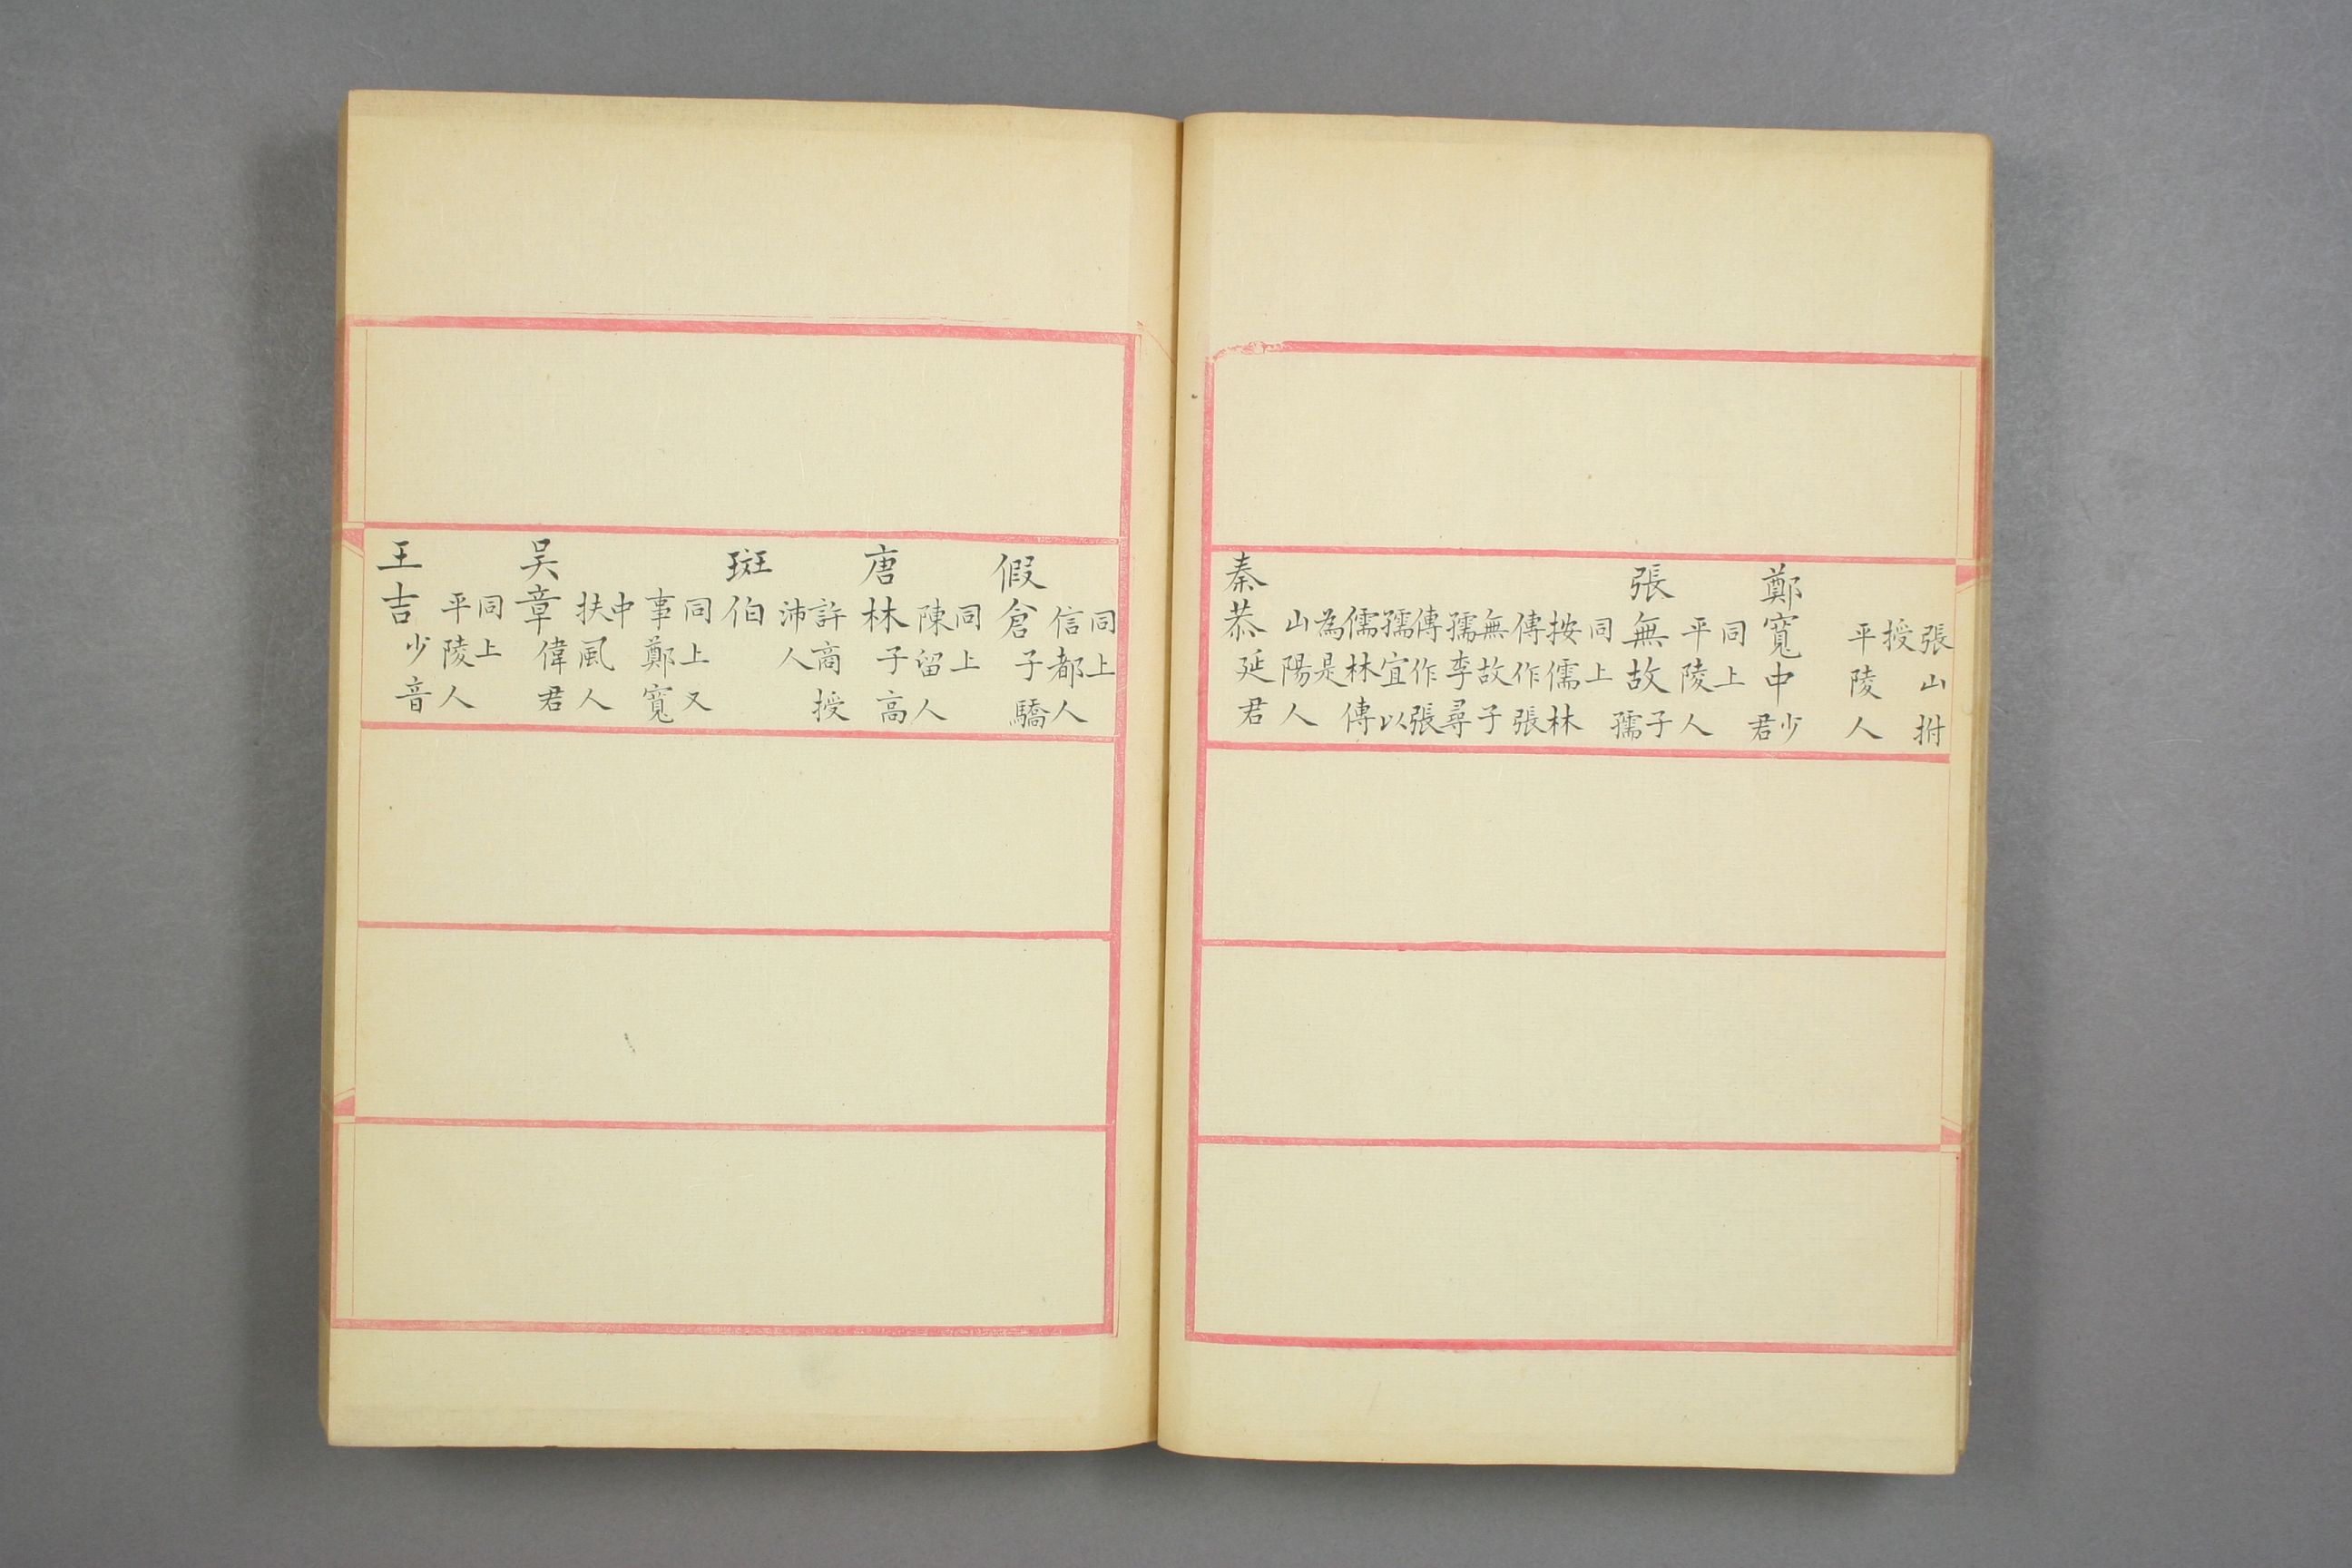 張山拊
授
平陵人
鄭寬中少君
同上
平陵人
張無故子孺
同上
按儒林
傳作張
無故子
孺李尋
傳作張
孺宜以
儒林傳
為是
山陽人
秦恭延君
同上
信都人
假倉子驕
同上
陳留人
唐林子高
許商授
沛人
斑伯
同上又
事鄭寬
中
扶風人
吴章偉君
同上
平陵人
王吉少音